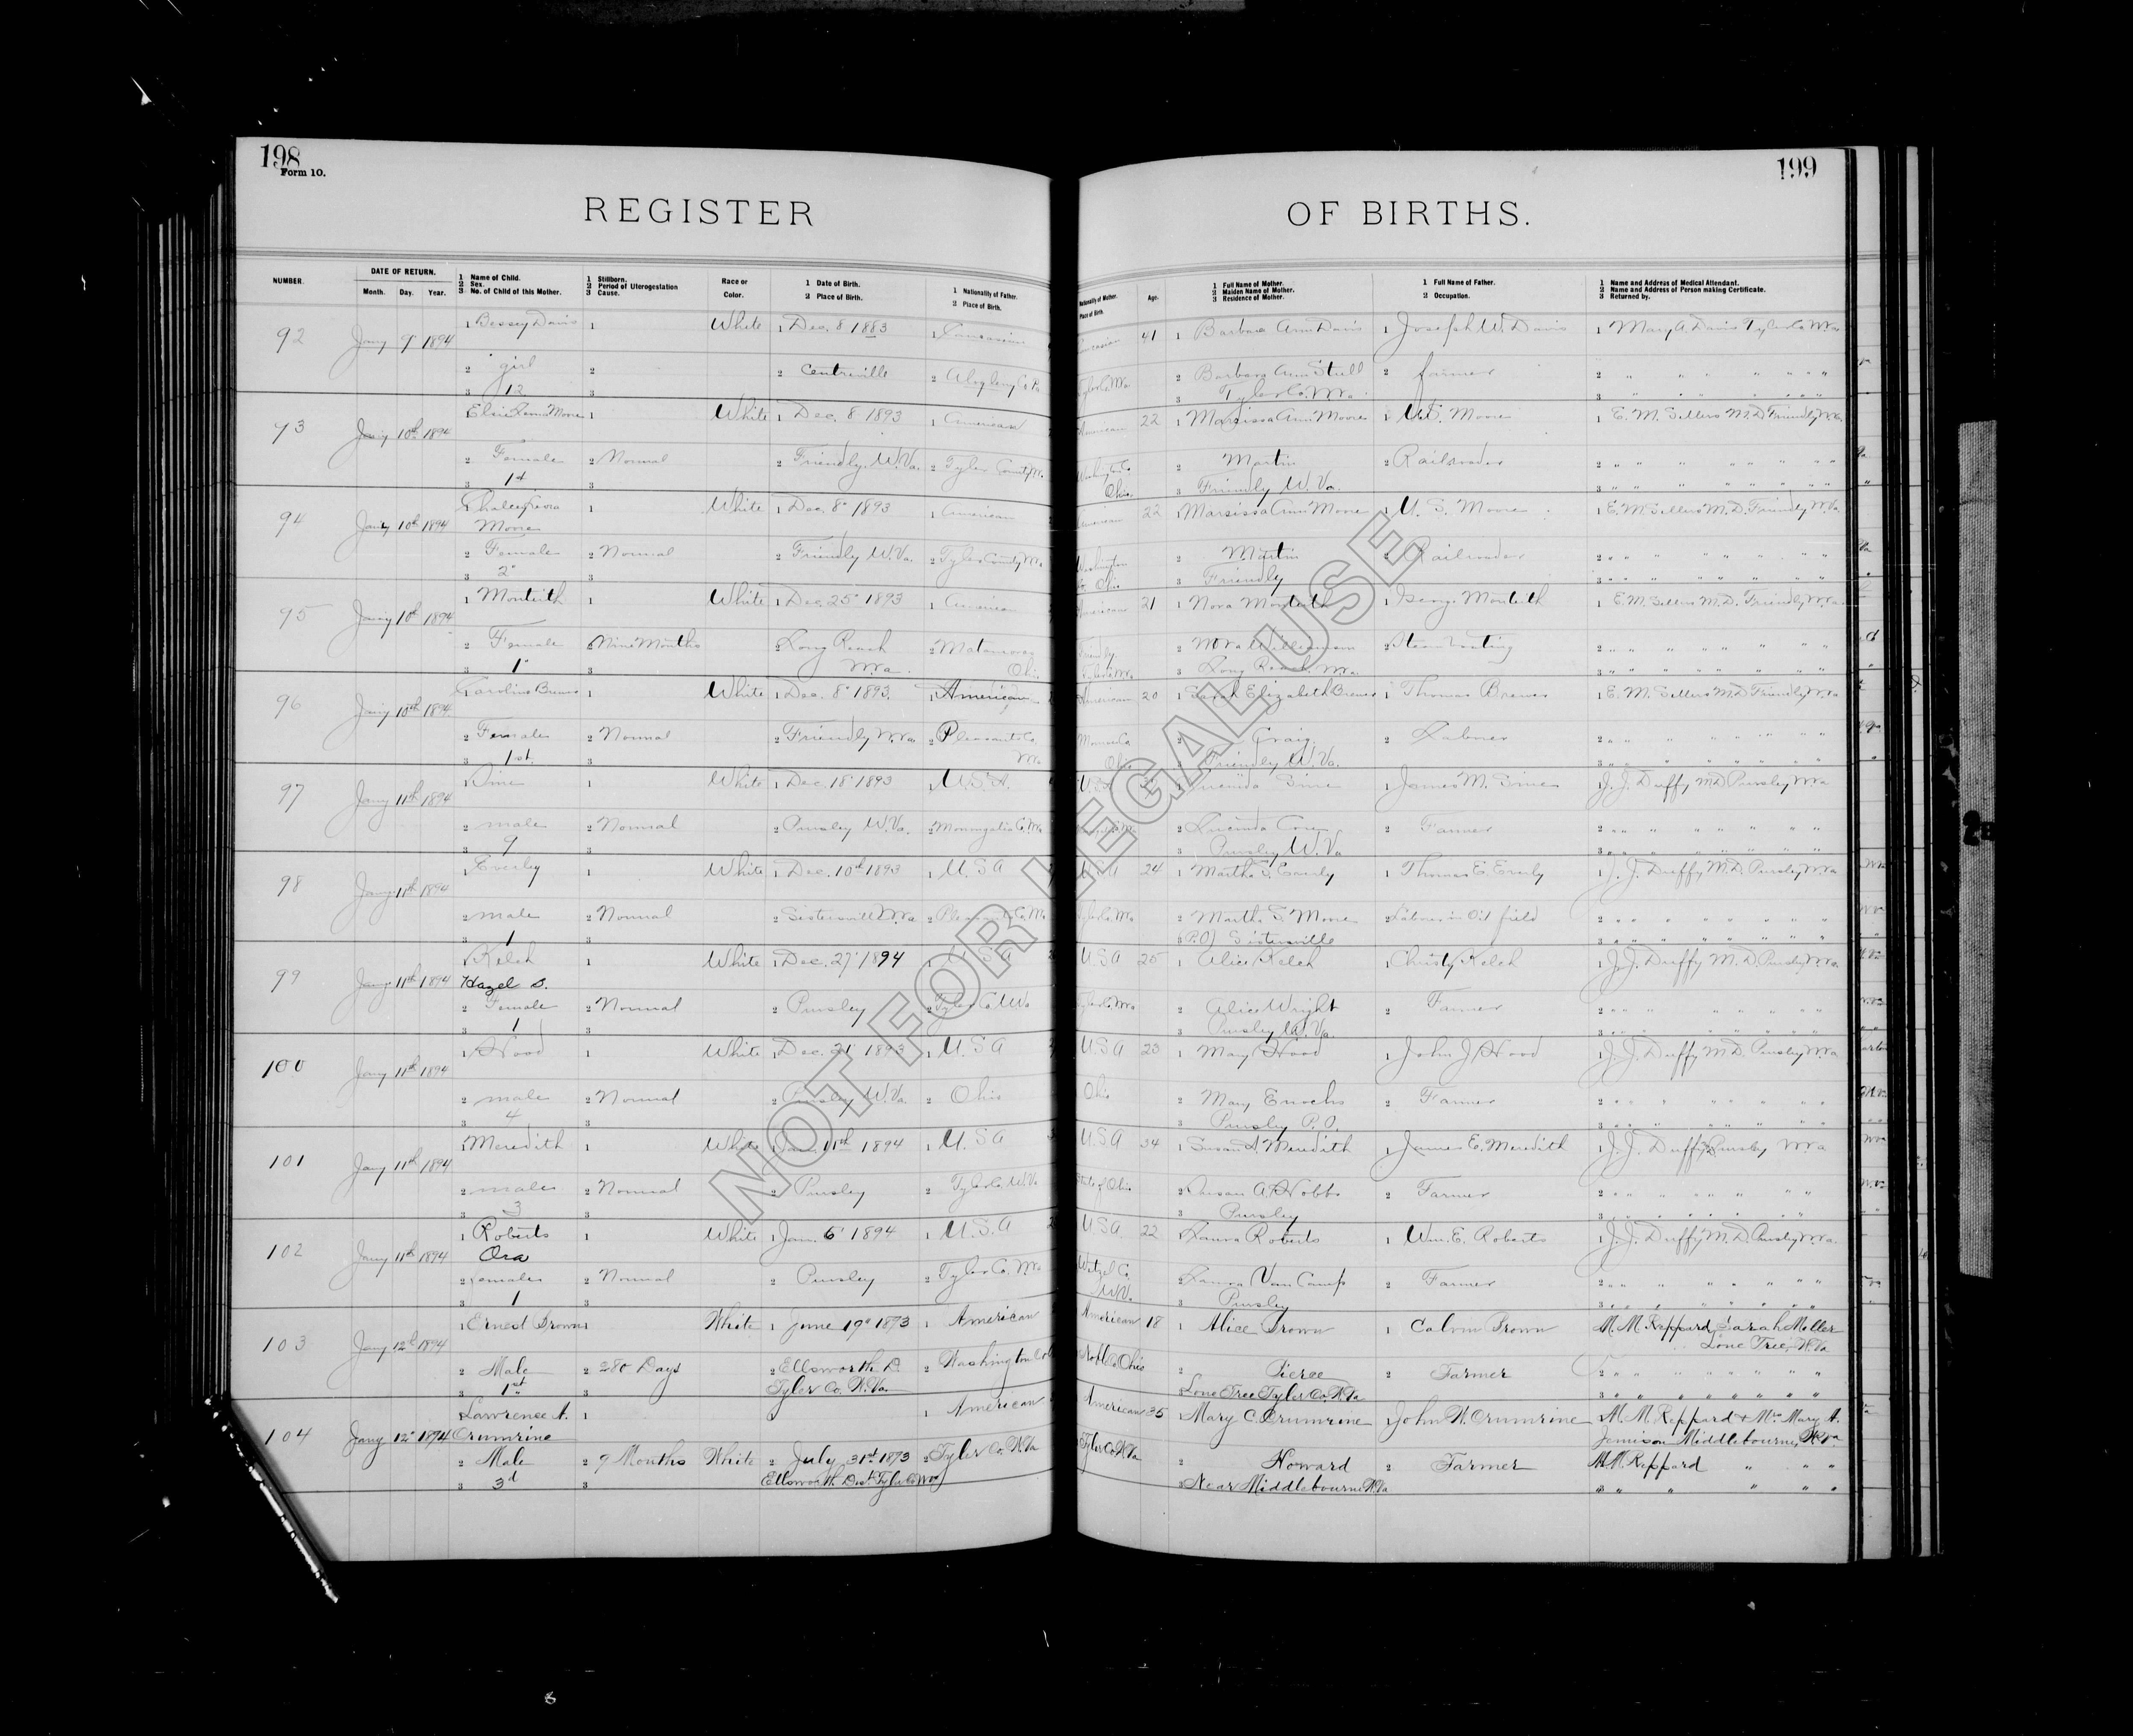 198
Form 10.
199
REGISTER OF BIRTHS.
NUMBER.
DATE OF RETURN.
Month. Day. Year.
1 Name of Child.
2 Sex.
3 No. of Child of this Mother.
1 Stillborn.
2 Period of Uterogestation
3 Cause.
Race or
Color.
1 Date of Birth.
2 Place of Birth.
1 Nationality of Father.
2 Place of Birth.
Nationality of Mother.
Place of Birth.
Age.
1 Full Name of Mother.
2 Maiden Name of Mother.
3 Residence of Mother.
1 Full Name of Father.
2 Occupation.
1 Name and Address of Medical Attendant.
2 Name and Address of Person making Certificate.
3 Returned by.
92 Jany 9 1894 1 Bessey Davis 1 White 1 Dec. 8 1883 1 Caucasian 41 1 Barbara Ann Davis 1 Joseph W. Davis 1 Mary A. Davis Tyler Co W.Va
2 girl 2 2 Centreville 2 2 Barbara Ann Stull 2 farmer 2 " " " " " "
3 12 3 3 Tyler Co. W.Va.
93 Jany 10th 1894 Moore 1 White 1 Dec. 8 1893 1 American American 22 1 Ann Moore 1 U.S. Moore 1 E. M. Sellers M.D. Friendly W.Va.
2 Female 2 Normal 2 Friendly, W.Va. 2 Tyler County W.Va. Washington Co. 2 Martin 2 Railroader 2 " " " " " " "
3 1st 3 Ohio. 3 Friendly W.Va. 3 " " " " " " "
94 Jany 10th 1894 1 White 1 Dec. 8" 1893 1 American American 22 1 Ann Moore 1 U. S. Moore 1 E. M. Sellers M.D. Friendly W.Va
Moore
2 Female 2 Normal 2 Friendly W.Va. 2 Tyler County W.Va Washington 2 Martin 2 Railroader 2 " " " " " " "
3 2" 3 Co. Ohio 3 Friendly 3 " " " " " " "
95 Jany 10th 1894 1 Monteith 1 White 1 Dec. 25" 1893 1 American American 21 1 Nora Monteith 1 George Monteith 1 E. M. Sellers M.D. Friendly W.Va
2 Female 2 Nine Months 2 Long Reach 2 Matamoras Friendly 2 Nora Williamson 2 Steamboating 2 " " " " " " "
3 1" 3 W.Va. Ohio 3 Long Reach W.Va. 3 " " " " " " "
96 Jany 10th 1894 1 Brewer 1 White 1 Dec. 8" 1893. 1 American American 20 1 Sarah Elizabeth Brewer 1 Thomas Brewer 1 E. M. Sellers M.D Friendly W.Va
2 Female 2 Normal 2 Friendly W.Va 2 Pleasants Co. Monroe Co. 2 Craig 2 Laborer 2 " " " " " " "
3 1st. 3 W.Va Ohio 3 Friendly W.Va. 3 " " " " " " "
97 Jany 11th 1894 1 Sine 1 White 1 Dec 18" 1893 1 U.S.A. U.S.A 1 Lucinda Sine 1 James M. Sine 1 J. J. Duffy M.D Pursley W.Va
2 male 2 Normal 2 Pursley W.Va. 2 Monongalia Co. W.Va 2 Lucinda 2 Farmer 2 " " " " " " "
3 9 3 3 Pursley W.Va 3 " " " " " " "
98 Jany 11th 1894 1 Everly 1 White 1 Dec. 10th 1893 1 U.S A U.S.A 24 1 Martha S. Everly 1 Thomas E. Everly 1 J. J. Duffy M.D. Pursley W.Va
2 male 2 Normal 2 Sistersville W.Va 2 Pleasants Co. W.Va Tyler Co. W.Va 2 Martha S. Moore 2 Laborer in Oil field 2 " " " " " " "
3 1 3 3 (P.O) Sistersville 3 " " " " " " "
99 Jany 11th 1894 1 Kelch 1 White 1 Dec. 27" 1894 1 U S A U.S.A 25 1 Alice Kelch 1 Christy Kelch 1 J. J. Duffy M.D. Pursley W.Va
Hazel S.
2 Female 2 Normal 2 Pursley 2 Tyler Co. W.Va Tyler Co. W.Va 2 Alice Wright 2 Farmer 2 " " " " " " "
3 1 3 3 Pursley W.Va. 3 " " " " " " "
100 Jany 11th 1894 1 Hood 1 White 1 Dec. 21" 1893 1 U.S A U.S.A 23 1 Mary Hood 1 John J. Hood 1 J. J. Duffy M.D. Pursley W.Va
2 male 2 Normal 2 Pursley W.Va. 2 Ohio Ohio 2 Mary Enochs 2 Farmer 2 " " " " " " "
3 4 3 3 Pursley P.O. 3 " " " " " " "
101 Jany 11th 1894 1 Meredith 1 White 1 Jan. 11th 1894 1 U.S A U.S.A 34 1 Susan A. Meredith 1 James E. Meredith 1 J. J. Duffy Pursley W.Va
2 male 2 Normal 2 Pursley 2 Tyler Co. W.Va State of Ohio 2 Susan A. Hobbs 2 Farmer 2 " " " " " " "
3 3 3 3 Pursley 3 " " " " " " "
102 Jany 11th 1894 1 Roberts 1 White 1 Jan. 6" 1894 1 U.S.A U.S.A. 22 1 Laura Roberts 1 Wm. E. Roberts 1 J. J. Duffy M.D Pursley W.Va.
Ora
2 Female 2 Normal 2 Pursley 2 Tyler Co. W.Va Wetzel Co. 2 Laura Van Camp 2 Farmer 2 " " " " " " "
3 1 3 W.Va. 3 Pursley 3 " " " " " " "
103 Jany 12th 1894 1 Ernest Brown 1 White 1 June 19" 1893 1 American American 18 1 Alice Brown 1 Calvin Brown M. M. Reppard, Sarah Moller
Lone Tree, W.Va
2 Male 2 280 Days 2 Ellsworth D. 2 Washington Co Noble Co Ohio 2 Pierce 2 Farmer 2 " " " " " " "
3 1st 3 Tyler Co. W.Va. 3 Lone Tree Tyler Co. W.Va 3 " " " " " " "
104 Jany 12" 1894 1 Lawrence A. 1 1 American American 35 1 Mary C. Crumrine 1 John W. Crumrine 1 M. M. Reppard & Mrs Mary A.
Crumrine Jemison Middlebourne, W.Va
2 Male 2 9 Months White 2 July 31st 1893 2 Tyler Co. W.Va Tyler Co. W.Va 2 Howard 2 Farmer M.M. Reppard " " "
3 3d 3 Ellsworth Dist Tyler Co W.Va 3 Near Middlebourne W.Va 3 " " " " "
NOT FOR LEGAL USE